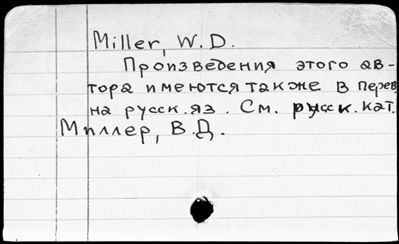 Miller, W.D.
Произведения этого ав-
тора имеются также в перев.
на русск. яз. См. русск. кат.
Миллер, В.Д.